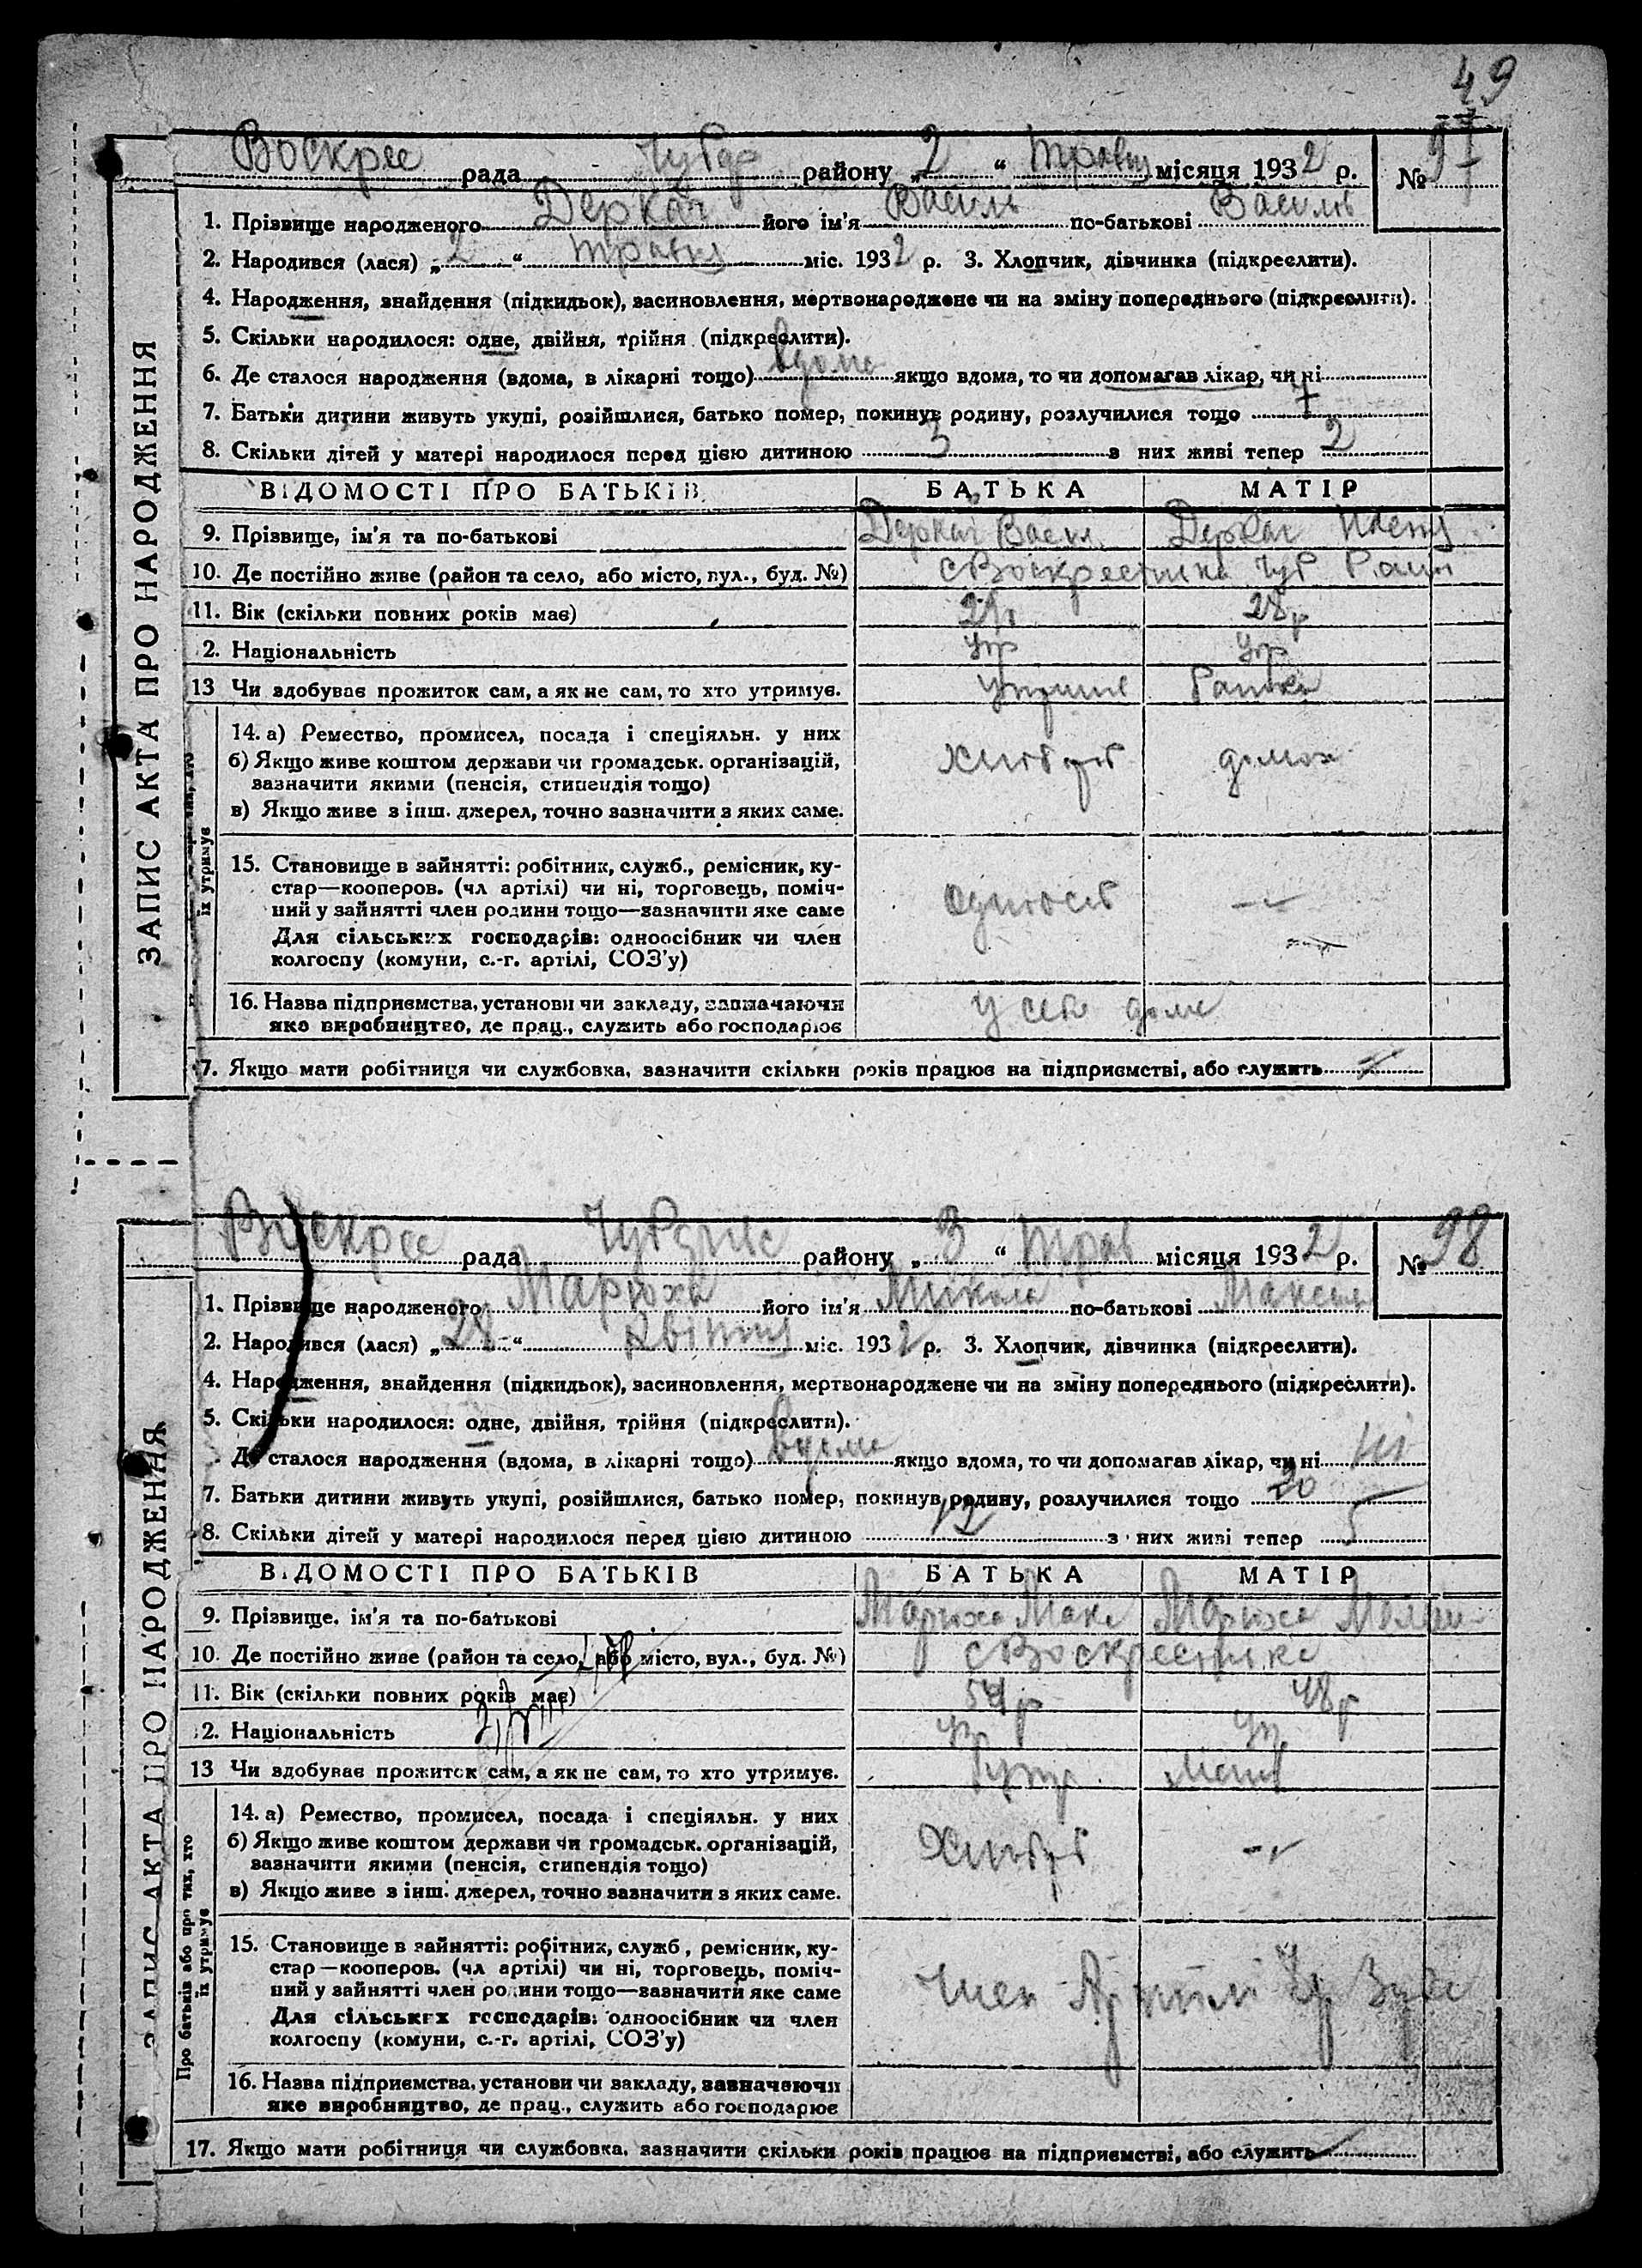 49
Воскрес рада Чубар району „ 2 “ травня місяця 1932 р. № 97
ЗАПИС АКТА ПРО НАРОДЖЕННЯ
1. Прізвище народженого Деркач його ім'я Василь по-батькові Василів
2. Народився (лася) „ 2 “ травня міс. 1932 р. 3. Хлопчик, дівчинка (підкреслити).
4. Народження, знайдення (підкидьок), засиновлення, мертвонароджене чи на зміну попереднього (підкреслити).
5. Скільки народилося: одне, двійня, трійня (підкреслити).
6. Де сталося народження (вдома, в лікарні тощо) вдома якщо вдома, то чи допомагав лікар, чи ні
7. Батьки дитини живуть укупі, розійшлися, батько помер, покинув родину, розлучилися тощо
8. Скільки дітей у матері народилося перед цією дитиною 3 з них живі тепер 2
ВІДОМОСТІ ПРО БАТЬКІВ БАТЬКА МАТІР
9. Прізвище, ім'я та по-батькові Деркач Васил Деркач
10. Де постійно живе (район та село, або місто, вул., буд. №) с Воскресенка Чуб Район
11. Вік (скільки повних років має) 28р
2. Національність Укр Укр
13 Чи здобуває прожиток сам, а як не сам, то хто утримує.
їх утримує
14. а) Ремество, промисел, посада і спеціяльн. у них
б) Якщо живе коштом держави чи громадськ. організацій,
зазначити якими (пенсія, стипендія тощо) Хлібороб домох
в) Якщо живе з інш. джерел, точно зазначити з яких саме.
15. Становище в зайнятті: робітник, служб., ремісник, ку-
стар—кооперов. (чл артілі) чи ні, торговець, поміч-
ний у зайнятті член родини тощо—зазначити яке саме одноосіб
Для сільських господарів: одноосібник чи член
колгоспу (комуни, с.-г. артілі, СОЗ'у)
16. Назва підприємства, установи чи закладу, зазначаючи у себе дома
яке виробництво, де прац., служить або господарює
7. Якщо мати робітниця чи службовка, зазначити скільки років працює на підприємстві, або служить
Воскрес рада Чубарівс району „ 3 “ трав місяця 1932 р. № 98
ЗАПИС АКТА ПРО НАРОДЖЕННЯ
1. Прізвище народженого Марюха його ім'я Микола по-батькові Максим
2. Народився (лася) „ 28 “ квітня міс. 1932 р. 3. Хлопчик, дівчинка (підкреслити).
4. Народження, знайдення (підкидьок), засиновлення, мертвонароджене чи на зміну попереднього (підкреслити).
5. Скільки народилося: одне, двійня, трійня (підкреслити).
Де сталося народження (вдома, в лікарні тощо) вдома якщо вдома, то чи допомагав лікар, чи ні ні
7. Батьки дитини живуть укупі, розійшлися, батько помер, покинув родину, розлучилися тощо
8. Скільки дітей у матері народилося перед цією дитиною 12 з них живі тепер 5
ВІДОМОСТІ ПРО БАТЬКІВ БАТЬКА МАТІР
9. Прізвище, ім'я та по-батькові Марюха Макс Марюха
10. Де постійно живе (район та село, або місто, вул., буд. №) с Воскресенка
11. Вік (скільки повних років має) 54р 48р
2. Національність Ук Ук
13 Чи здобуває прожиток сам, а як не сам, то хто утримує.
Про батьків або про тих, хто
їх утримує
14. а) Ремество, промисел, посада і спеціяльн. у них
б) Якщо живе коштом держави чи громадськ. організацій,
зазначити якими (пенсія, стипендія тощо) Хлібороб
в) Якщо живе з інш. джерел, точно зазначити з яких саме.
15. Становище в зайнятті: робітник, служб, ремісник, ку-
стар—кооперов. (чл артілі) чи ні, торговець, поміч-
ний у зайнятті член родини тощо—зазначити яке саме Член Артілі
Для сільських господарів: одноосібник чи член
колгоспу (комуни, с.-г. артілі, СОЗ'у)
16. Назва підприємства, установи чи закладу, зазначаючи
яке виробництво, де прац., служить або господарює
17. Якщо мати робітниця чи службовка, зазначити скільки років працює на підприємстві, або служить